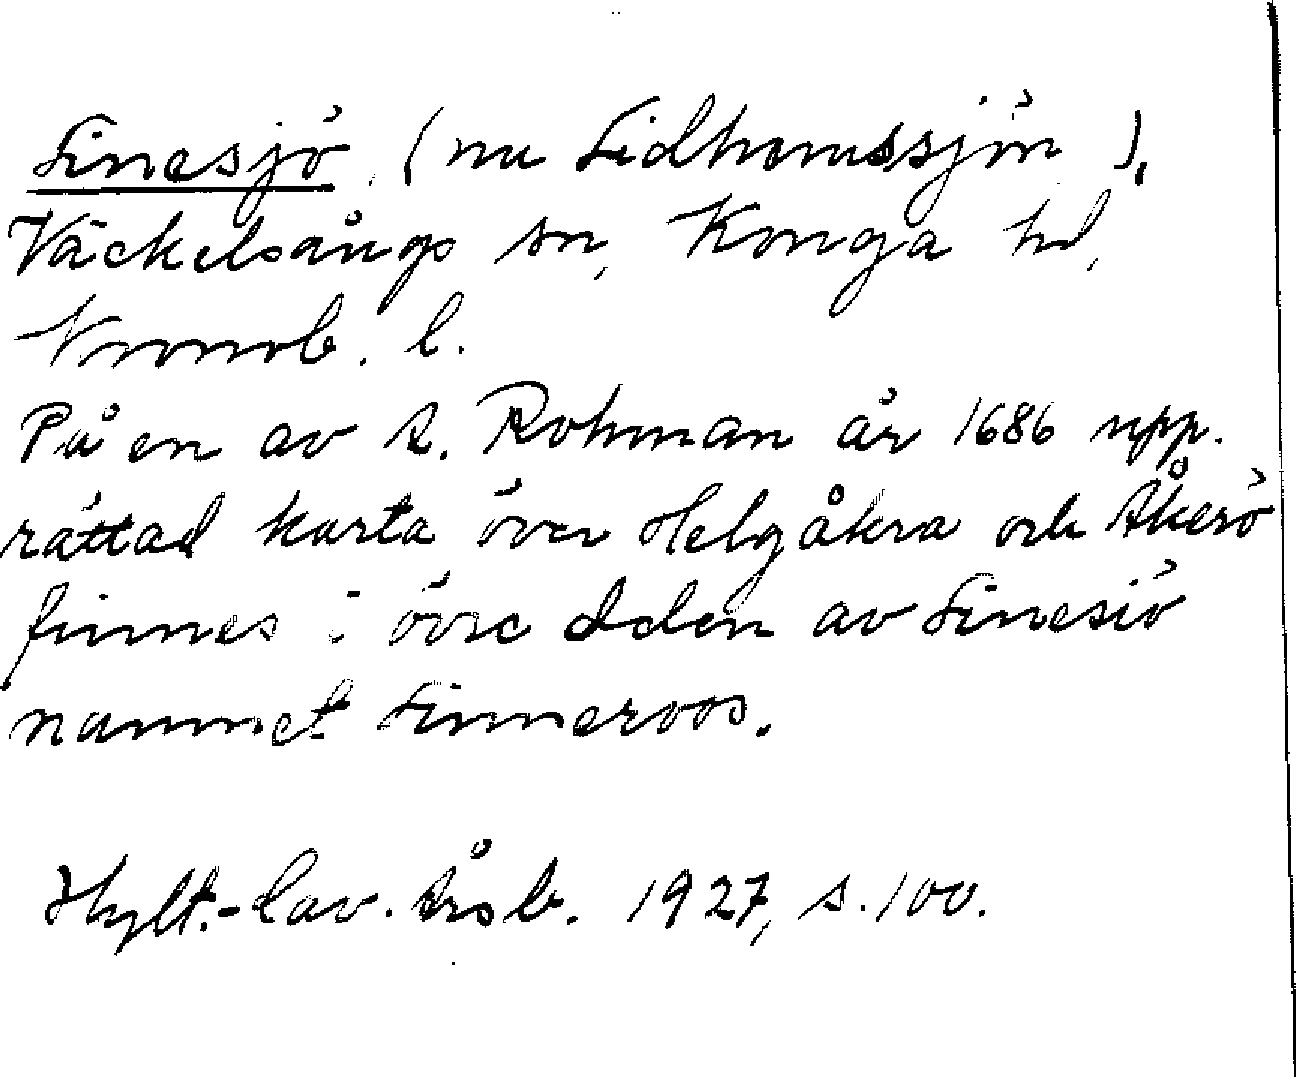 Sinesjö (nu Sidhemssjön),
Väckelsångs sn, Konga hd,
Kronob. l.
På en av A. Rohman år 1686 upp-
rättad karta över Helgåkra och Åkerö
finnes i övre delen av Sinesiö
namnet Sinneroos.
Hylt.-Cav. Årsb. 1927, s. 100.